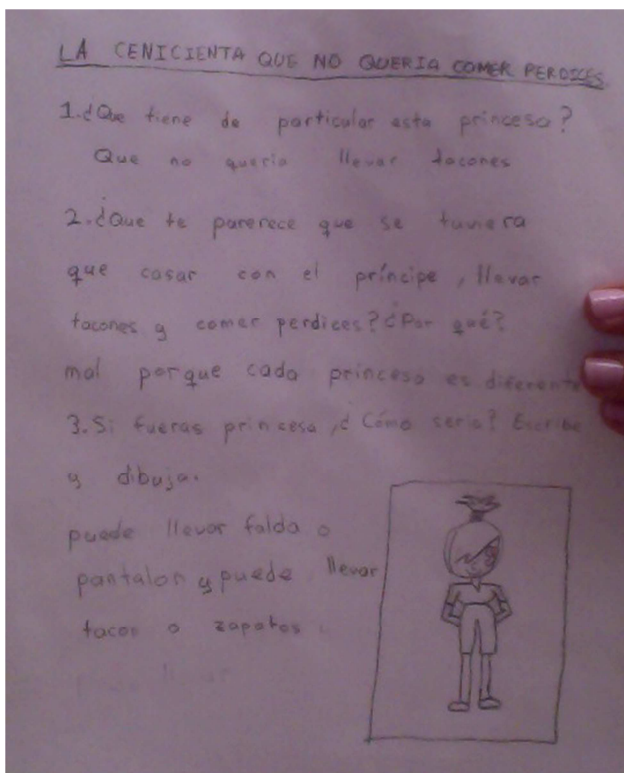 LA CENICIENTA QUE NO QUERIA COMER PERDICES
1.¿Que tiene de particular esta princesa?
Que no queria llevar tacones
2.¿Que te parerece que se tuviera
que casar con el príncipe, llevar
tacones y comer perdices?¿Por qué?
mal porque cada princesa es diferente
3.Si fueras princesa,¿Cómo seria? Escribe
y dibuja.
puede llevar falda o
pantalon y puede llevar
tacon o zapatos.
llevar